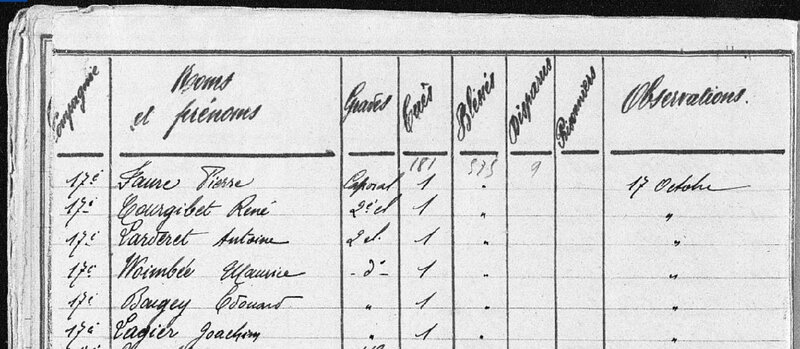 Compagnie Noms et prénoms Grades Tués Blessés Disparus Prisonniers Observations.
181 575 9
17e Faure Pierre Caporal 1 " 17 Octobre
17e Courgibet René 2e cl 1 " "
17e Larderet Antoine 2 cl. 1 " "
17e Woimbée Maurice - do - 1 " "
17e Bargey Edouard " 1 " "
17e Lagier Joachim " 1 " "